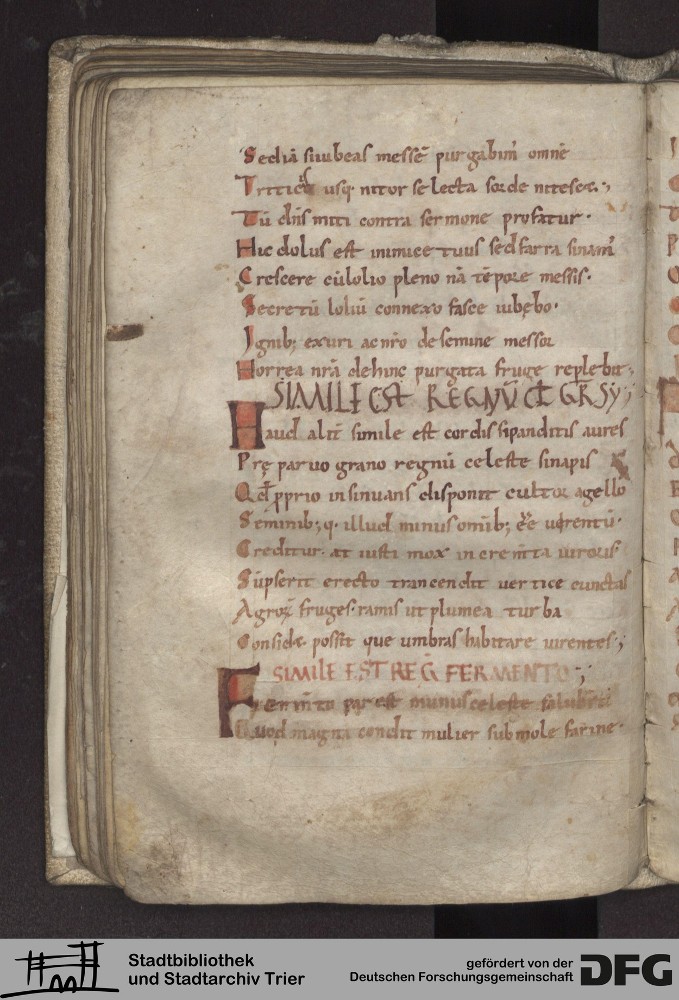 Sed iā si iubeas messē purgabim̄ omnē
Triticꝰ usq; nitor selecta sorde nitescat;
Tū dn̄s miti contra sermone profatur.
Hic dolus est inimice tuus sed farra sinam̄
Crescere cū lolio pleno nā tēpore messis.
Secretū loliū connexo fasce iubebo.
Ignib; exuri ac nr̄o de semine messor
Horrea nr̄a dehinc purgata fruge replebit;
SIMILE EST REGNŪ CĒ GR̄ SY;
Haud alit̄ simile est cordis si panditis aures
Prę paruo grano regnū celeste sinapis
Qđ pprio insinuans disponit cultor agello
Seminib; q. illud minus omīb; eē
Creditur. at iusti mox incremīta uirous
Sūpserit erecto trancendit uertice cunctas
Agroꝝ fruges. ramis ut plumea turba
Considē possit que umbras habitare uirentes;
SIMILE EST REḠ FERMENTO;
Fermīto par est munus celeste
Quod magna condit mulier sub mole farine.
Stadtbibliothek
und Stadtarchiv Trier
gefördert von der
Deutschen Forschungsgemeinschaft
DFG